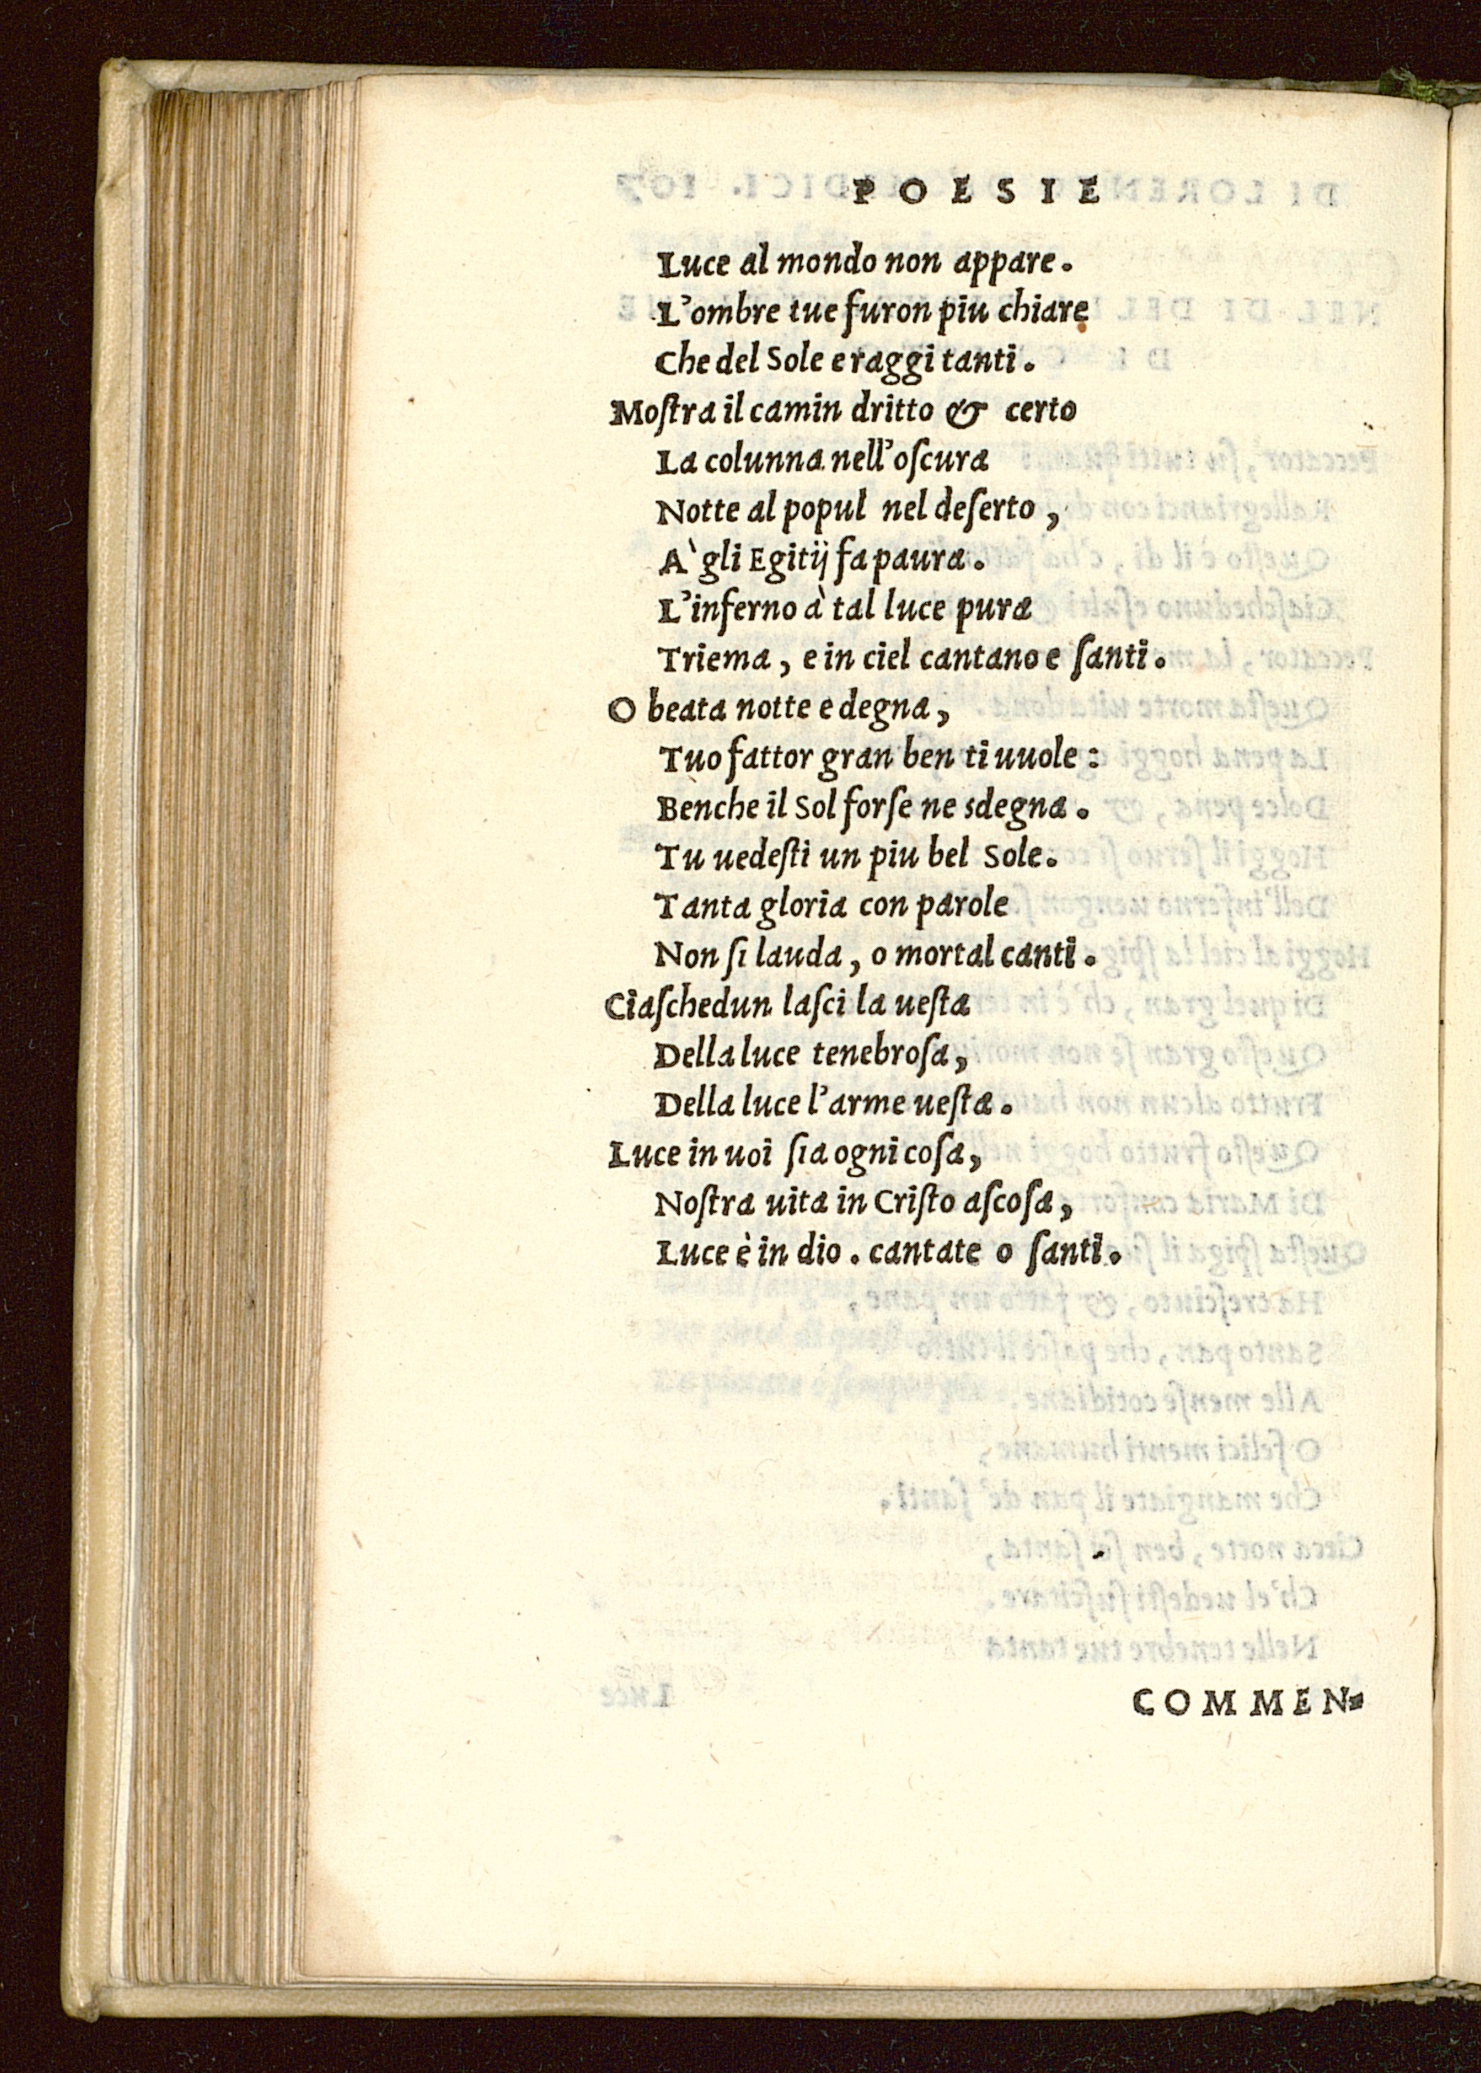 POESIE
Luce al mondo non appare.
L'ombre tue furon piu chiare
Che del Sole e raggi tanti.
Moſtra il camin dritto & certo
La colunna nell'oſcura
Notte al popul nel deſerto,
A' gli Egitij fa paura.
L'inferno à tal luce pura
Triema, e in ciel cantano e ſanti.
O beata notte e degna,
Tuo fattor gran ben ti uuole:
Benche il Sol forſe ne sdegna.
Tu uedeſti un piu bel Sole.
Tanta gloria con parole
Non ſi lauda, o mortal canti.
Ciaſchedun laſci la ueſta
Della luce tenebroſa,
Della luce l'arme ueſta.
Luce in uoi ſia ogni coſa,
Noſtra uita in Criſto aſcoſa,
Luce è in dio. cantate o ſanti.
COMMEN=